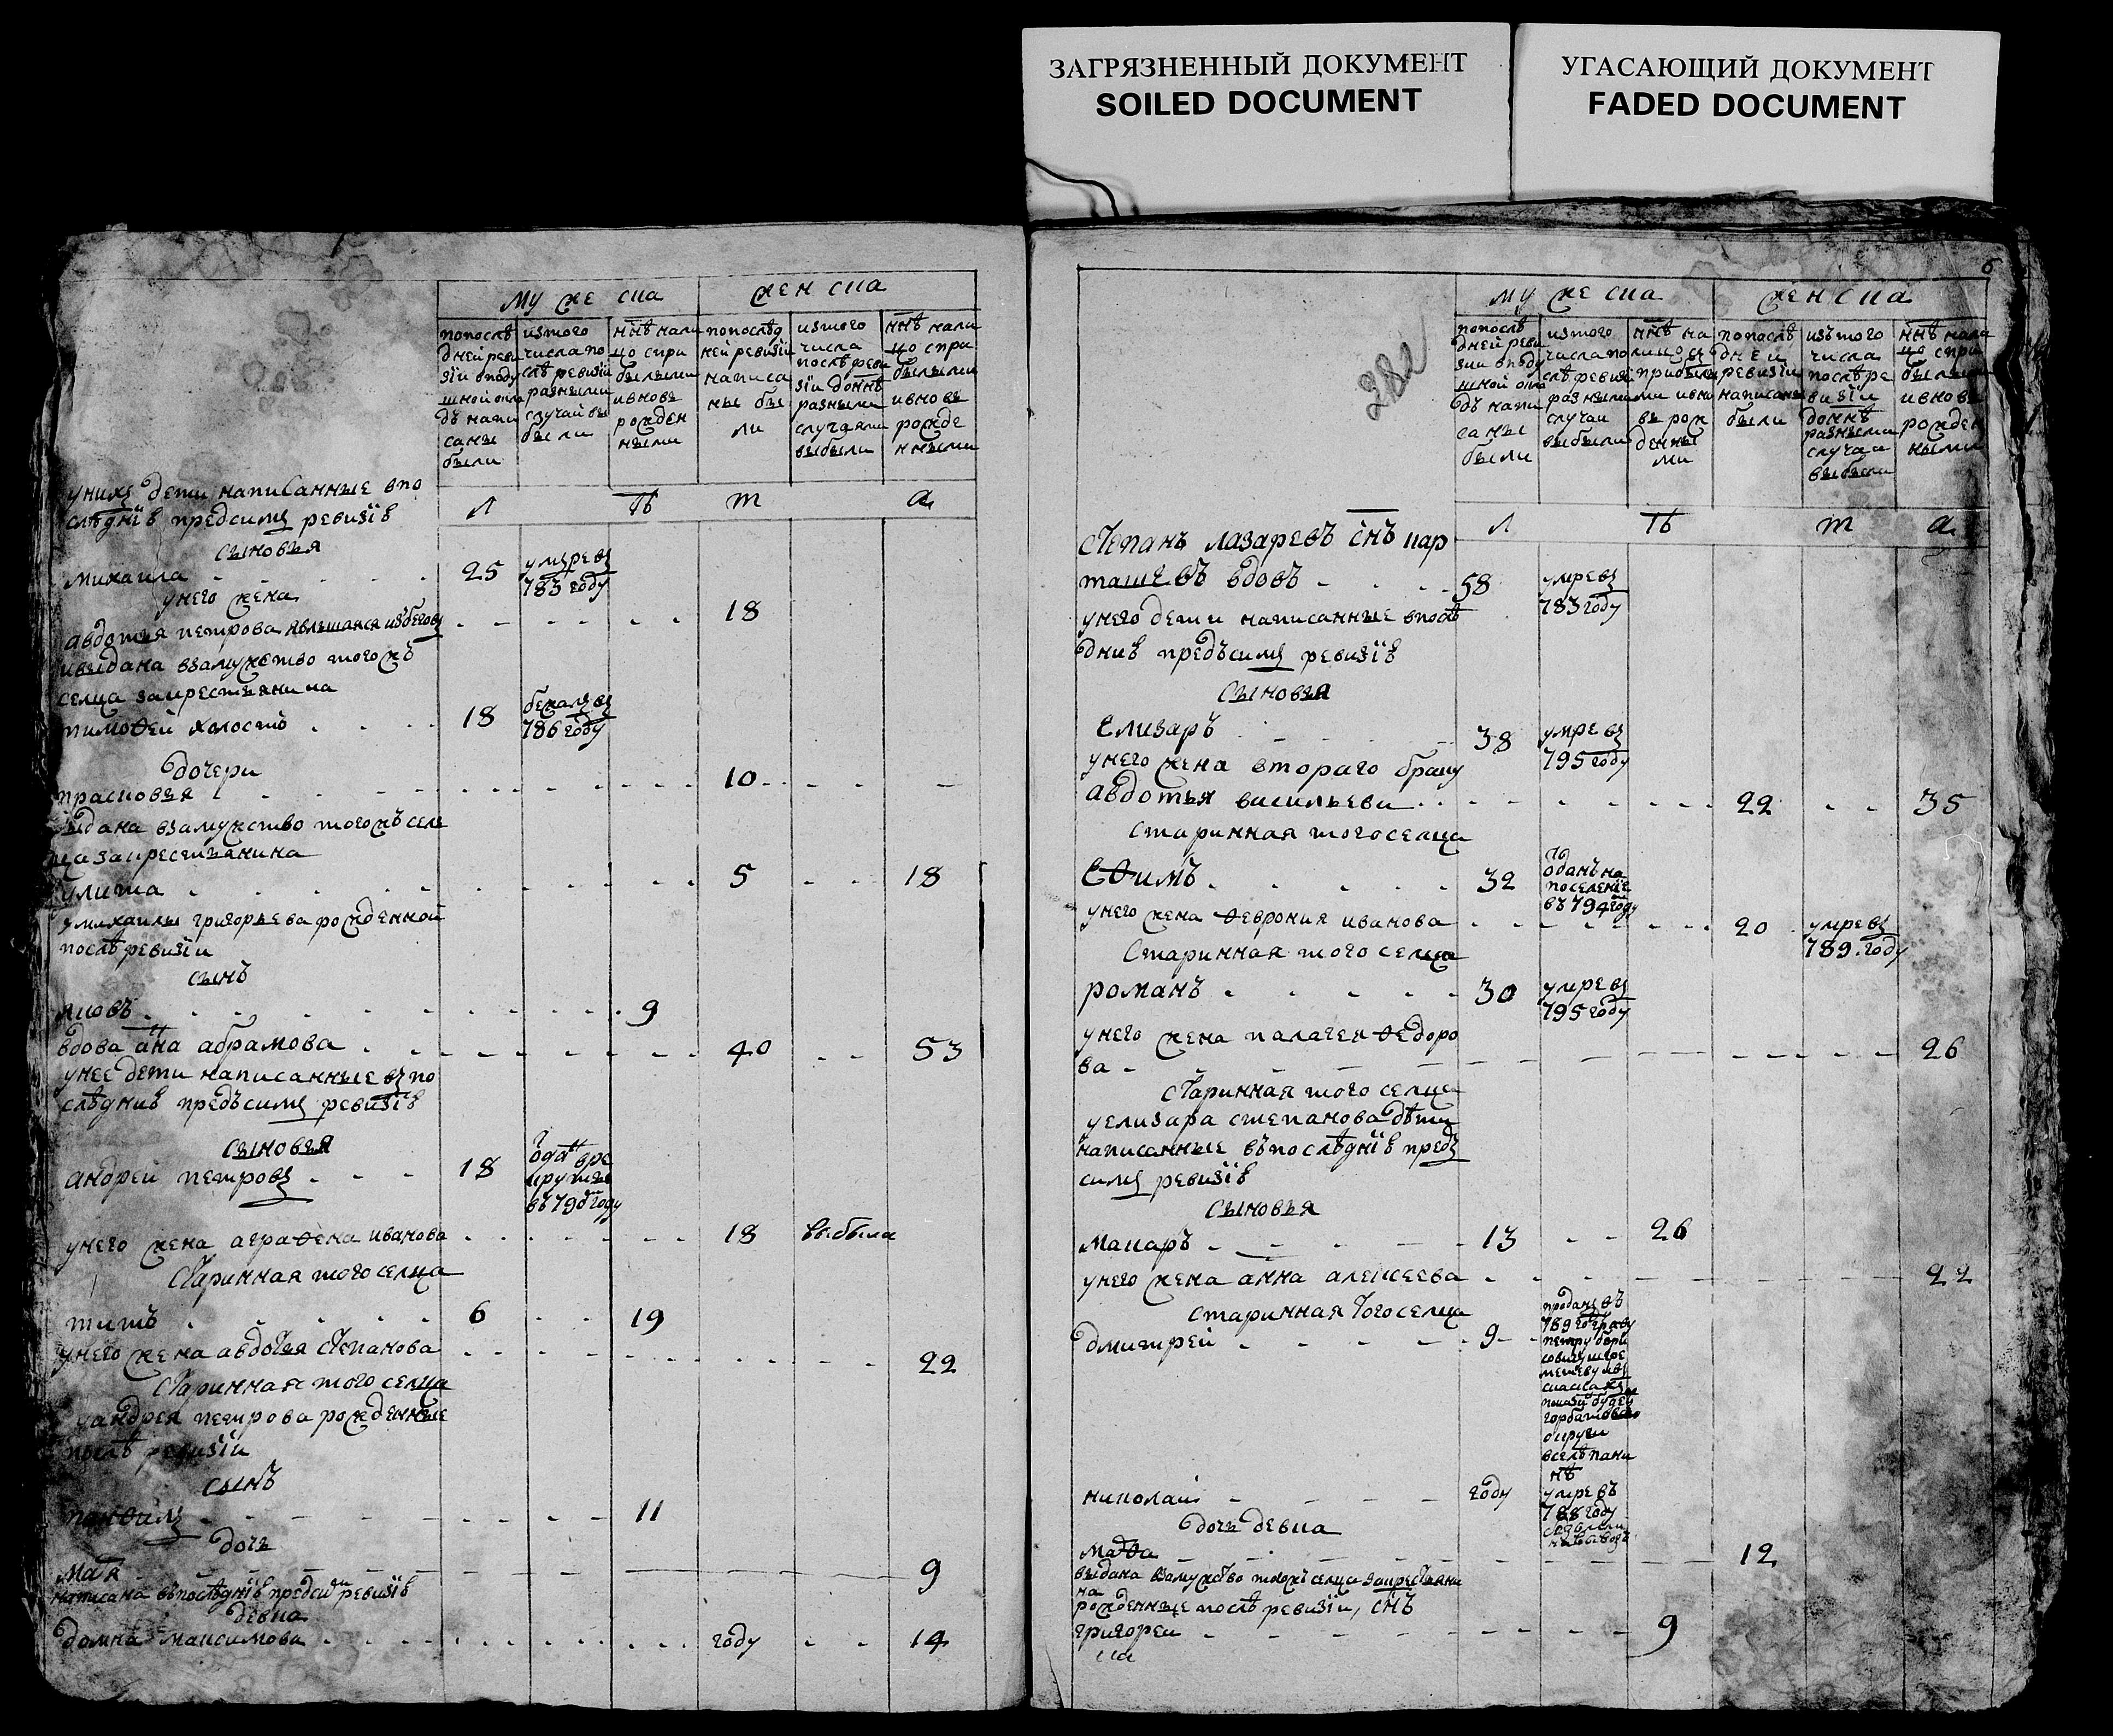 ЗАГРЯЗНЕННЫЙ ДОКУМЕНТ
SOILED DOCUMENT
УГАСАЮЩИЙ ДОКУМЕНТ
FADED DOCUMENT
муже ска
женска
попослѣ
дней реви
зіи вподу
шной окла
дъ напи
саны
были
изтого
числа по
слѣ ревизіи
разными
случаи вы
были
ннѣ нали
цо спри
былыми
ивновь
рожден
ными
попослѣд
ней ревизіи
написа
ны бы
ли
изтого
числа
послѣ реви
зіи доннѣ
разными
случаями
выбыли
ннѣ нали
цо спри
былыми
ивновь
рожде
нными
л ѣ т а
унихъ дети написанные впо
слѣдніѣ предсимъ ревизіѣ
сыновья
михаила 25 умре въ
783 году
унего жена
авдотья петрова явлшаяся избеговъ 18
ивыдана взамужство тогожъ
селца закрестьянина
тимоѳей холостъ 18 бежалъ въ
786 году
дочери
прасковья 10
выдана взамужство тогожъ сел
ца закрестьянина
улита 5 18
умихаилы григорьева рожденной
послѣ ревизіи
сынъ
яковъ 9
вдова анна абрамова 40 53
унее дети написанные въ по
слѣдниѣ предъсимъ ревизіѣ
сыновья
андрей петровъ 18 отданъ вре
круты
въ 796 году
унего жена аграѳена иванова 18 выбыла
старинная того селца
титъ 6 19
унего жена авдотья степанова 22
старинная того селца
уандрея петрова рожденные
послѣ ревизіи
сынъ
панѳилъ 11
дочь
маря 9
написана въпослѣдніѣ предсимъ ревизіѣ
девка
домна максимова году 14
6
282
муже ска
женска
попослѣ
дней реви
зіи вподу
шной окла
дъ напи
саны
были
изтого
числа по
слѣ ревизіи
разными
случаи
выбыли
ннѣ на
лицо съ
прибылы
ми ивно
вь рож
денны
ми
попослѣ
дней
ревизіи
написаны
были
изътого
числа
послѣ ре
визіи
доннѣ
разными
случаи
выбыли
ннѣ нали
цо спри
былыми
ивновь
рожден
ными
л ѣ т а
степанъ лазаревъ снъ кар
ташевъ вдовъ 58 умре въ
783 году
унего дети написанные впослѣ
дниѣ предъсимъ ревизіѣ
сыновья
елизаръ 38 умре въ
795 году
унего жена втораго браку
авдотья васильева 22 35
старинная того селца
еѳимъ 32 отданъ на
поселение
въ 794 году
унего жена ѳеврония иванова 20 умре въ
789 году
старинная того селца
романъ 30 умре въ
795 году
унего жена палагея ѳедоро
ва 26
старинная того селца
уелизара степанова дѣти
написанные въпослѣдніѣ предъ
симъ ревизіѣ
сыновья
макаръ 13 26
унего жена анна алексеева 22
старинная того селца
дмитрей 9 проданъ въ
789 году графу
петру бори
совичу шере
метеву
горбатовской
округи
вселѣ пани
нѣ
николаи году умре въ
788 году
дочь девка
марѳа 12
выдана взамужство тогожъ селца закрестьяни
на
рожденные послѣ ревизіи, снъ
григореи 9